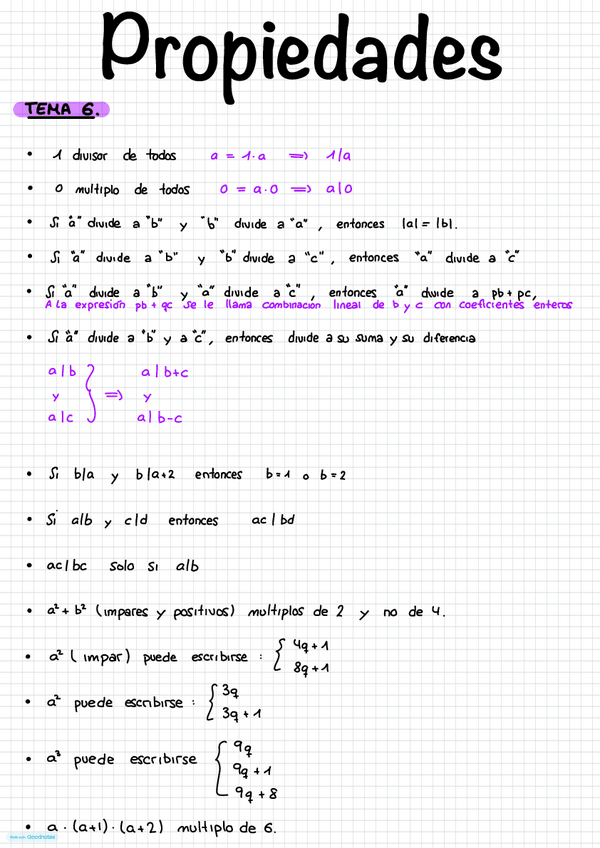 Propiedades
TEMA 6.
• 1 divisor de todos a = 1·a => 1/a
• 0 multiplo de todos 0 = a·0 => a|0
• Si "a" divide a "b" y "b" divide a "a", entonces |a| = |b|.
• Si "a" divide a "b" y "b" divide a "c", entonces "a" divide a "c"
• Si "a" divide a "b" y "a" divide a "c", entonces "a" divide a pb + pc,
A la expresión pb + qc se le llama combinación lineal de b y c con coeficientes enteros
• Si "a" divide a "b" y a "c", entonces divide a su suma y su diferencia
a|b } a|b+c
y => y
a|c a|b-c
• Si b/a y b|a+2 entonces b=1 o b=2
• Si a/b y c/d entonces ac|bd
• ac/bc solo si a/b
• a² + b² (impares y positivos) multiplos de 2 y no de 4.
• a² (impar) puede escribirse : { 4q + 1
8q + 1
• a² puede escribirse : { 3q
3q + 1
• a³ puede escribirse { 9q
9q + 1
9q + 8
• a · (a+1) · (a+2) multiplo de 6.
Made with Goodnotes